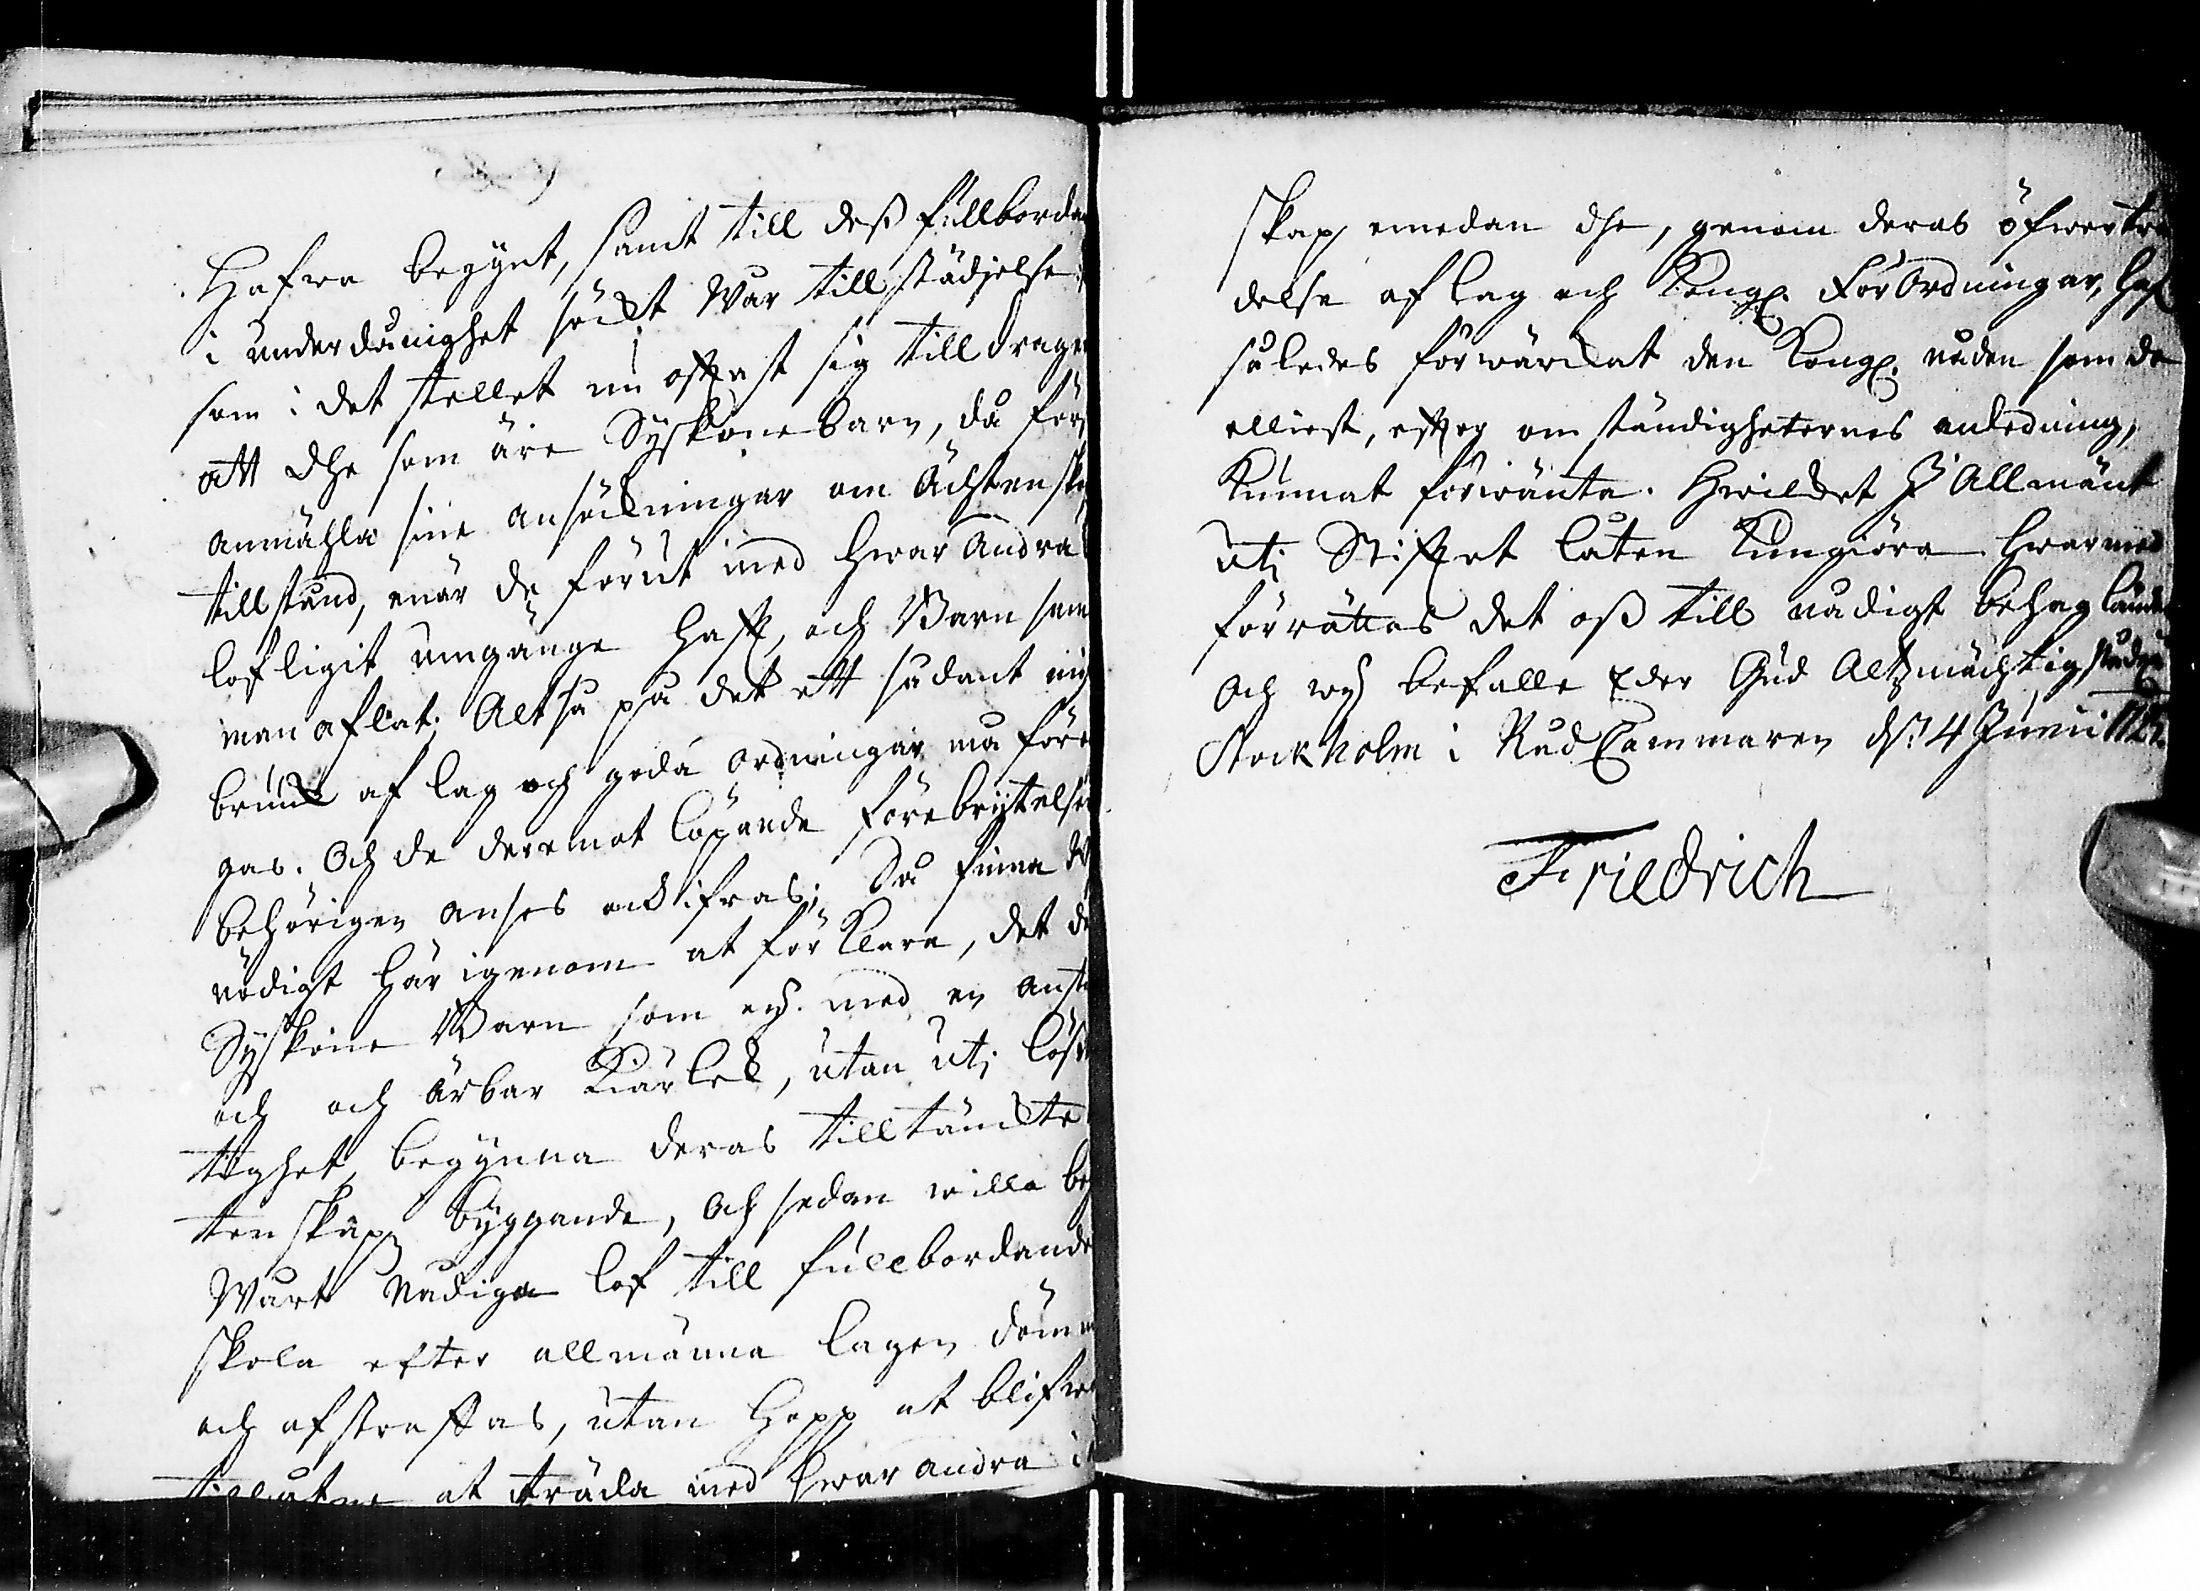 Hafwa begynt, samt till dess fullborda
i underdånighet sökt Wår tillstädjelse
som i det stellet nu oftast sig tilldrage
att dhe som äre Syskonebarn, då förs
anmähla sine ansökningar om Ächtenska
tillstånd, enär de förut med hwar Andra
lofligit umgänge haft, och Barn sam
man aflat; Altså på det ett sådant miß
bruk af lag och goda ordningar må före
gas. Och de deremot löpande förebrytelse
behörigen anses och ifras; Då finna W
nödigt här igenom at förklara, det de
Syskone Barn som ey med en anst
och och ärbar Kiärlek, utan uti lös
tighet, begynna deras tilltänckte
tenskaps byggande, Och sedan willa be
Wårt Nådiga lof till fullbordande
skola efter allmänna lagen döm
och afstraffas, utan hopp at blifwa
tillåtne at träda med hwar andra i
skap, emedan dhe, genom deras öfwerträ
delse af lag och Kongl. Förordningar, haf
således förwärckat den Kongl. nåden som de
elliest, efter omständigheternes anledning,
kunnat förwänta. Hwilcket I Allmänt
uti Stiftet låten kungiöra. Hwarmed
förrättes det oss till nådigt behag lände
Och wy befalle Eder Gud Altzmächtig
Stockholm i Råd Cammaren d. 4 Junii
Friedrich